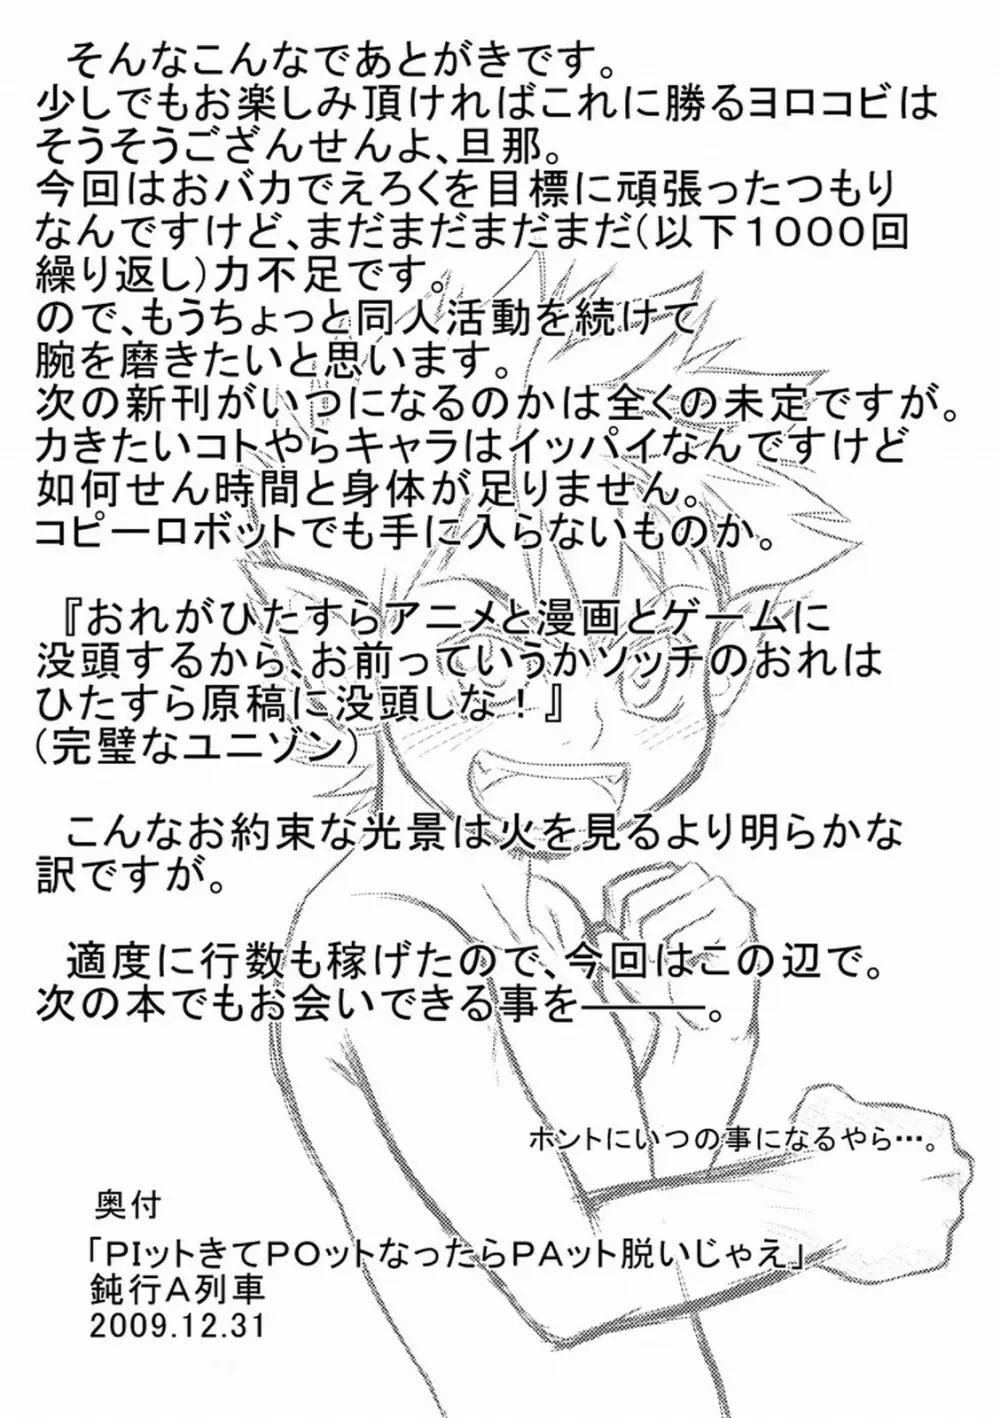 そんなこんなであとがきです。
少しでもお楽しみ頂ければこれに勝るヨロコビは
そうそうござんせんよ、旦那。
今回はおバカでえろくを目標に頑張ったつもり
なんですけど、まだまだまだまだ(以下1000回
繰り返し)力不足です。
ので、もうちょっと同人活動を続けて
腕を磨きたいと思います。
次の新刊がいつになるのかは全くの未定ですが。
力きたいコトやらキャラはイッパイなんですけど
如何せん時間と身体が足りません。
コピーロボットでも手に入らないものか。
『おれがひたすらアニメと漫画とゲームに
没頭するから、お前っていうかソッチのおれは
ひたすら原稿に没頭しな！』
(完璧なユニゾン)
こんなお約束な光景は火を見るより明らかな
訳ですが。
適度に行数も稼げたので、今回はこの辺で。
次の本でもお会いできる事を――――。
ホントにいつの事になるやら…。
奥付
「PIットきてPOットなったらPAット脱いじゃえ」
鈍行A列車
2009.12.31